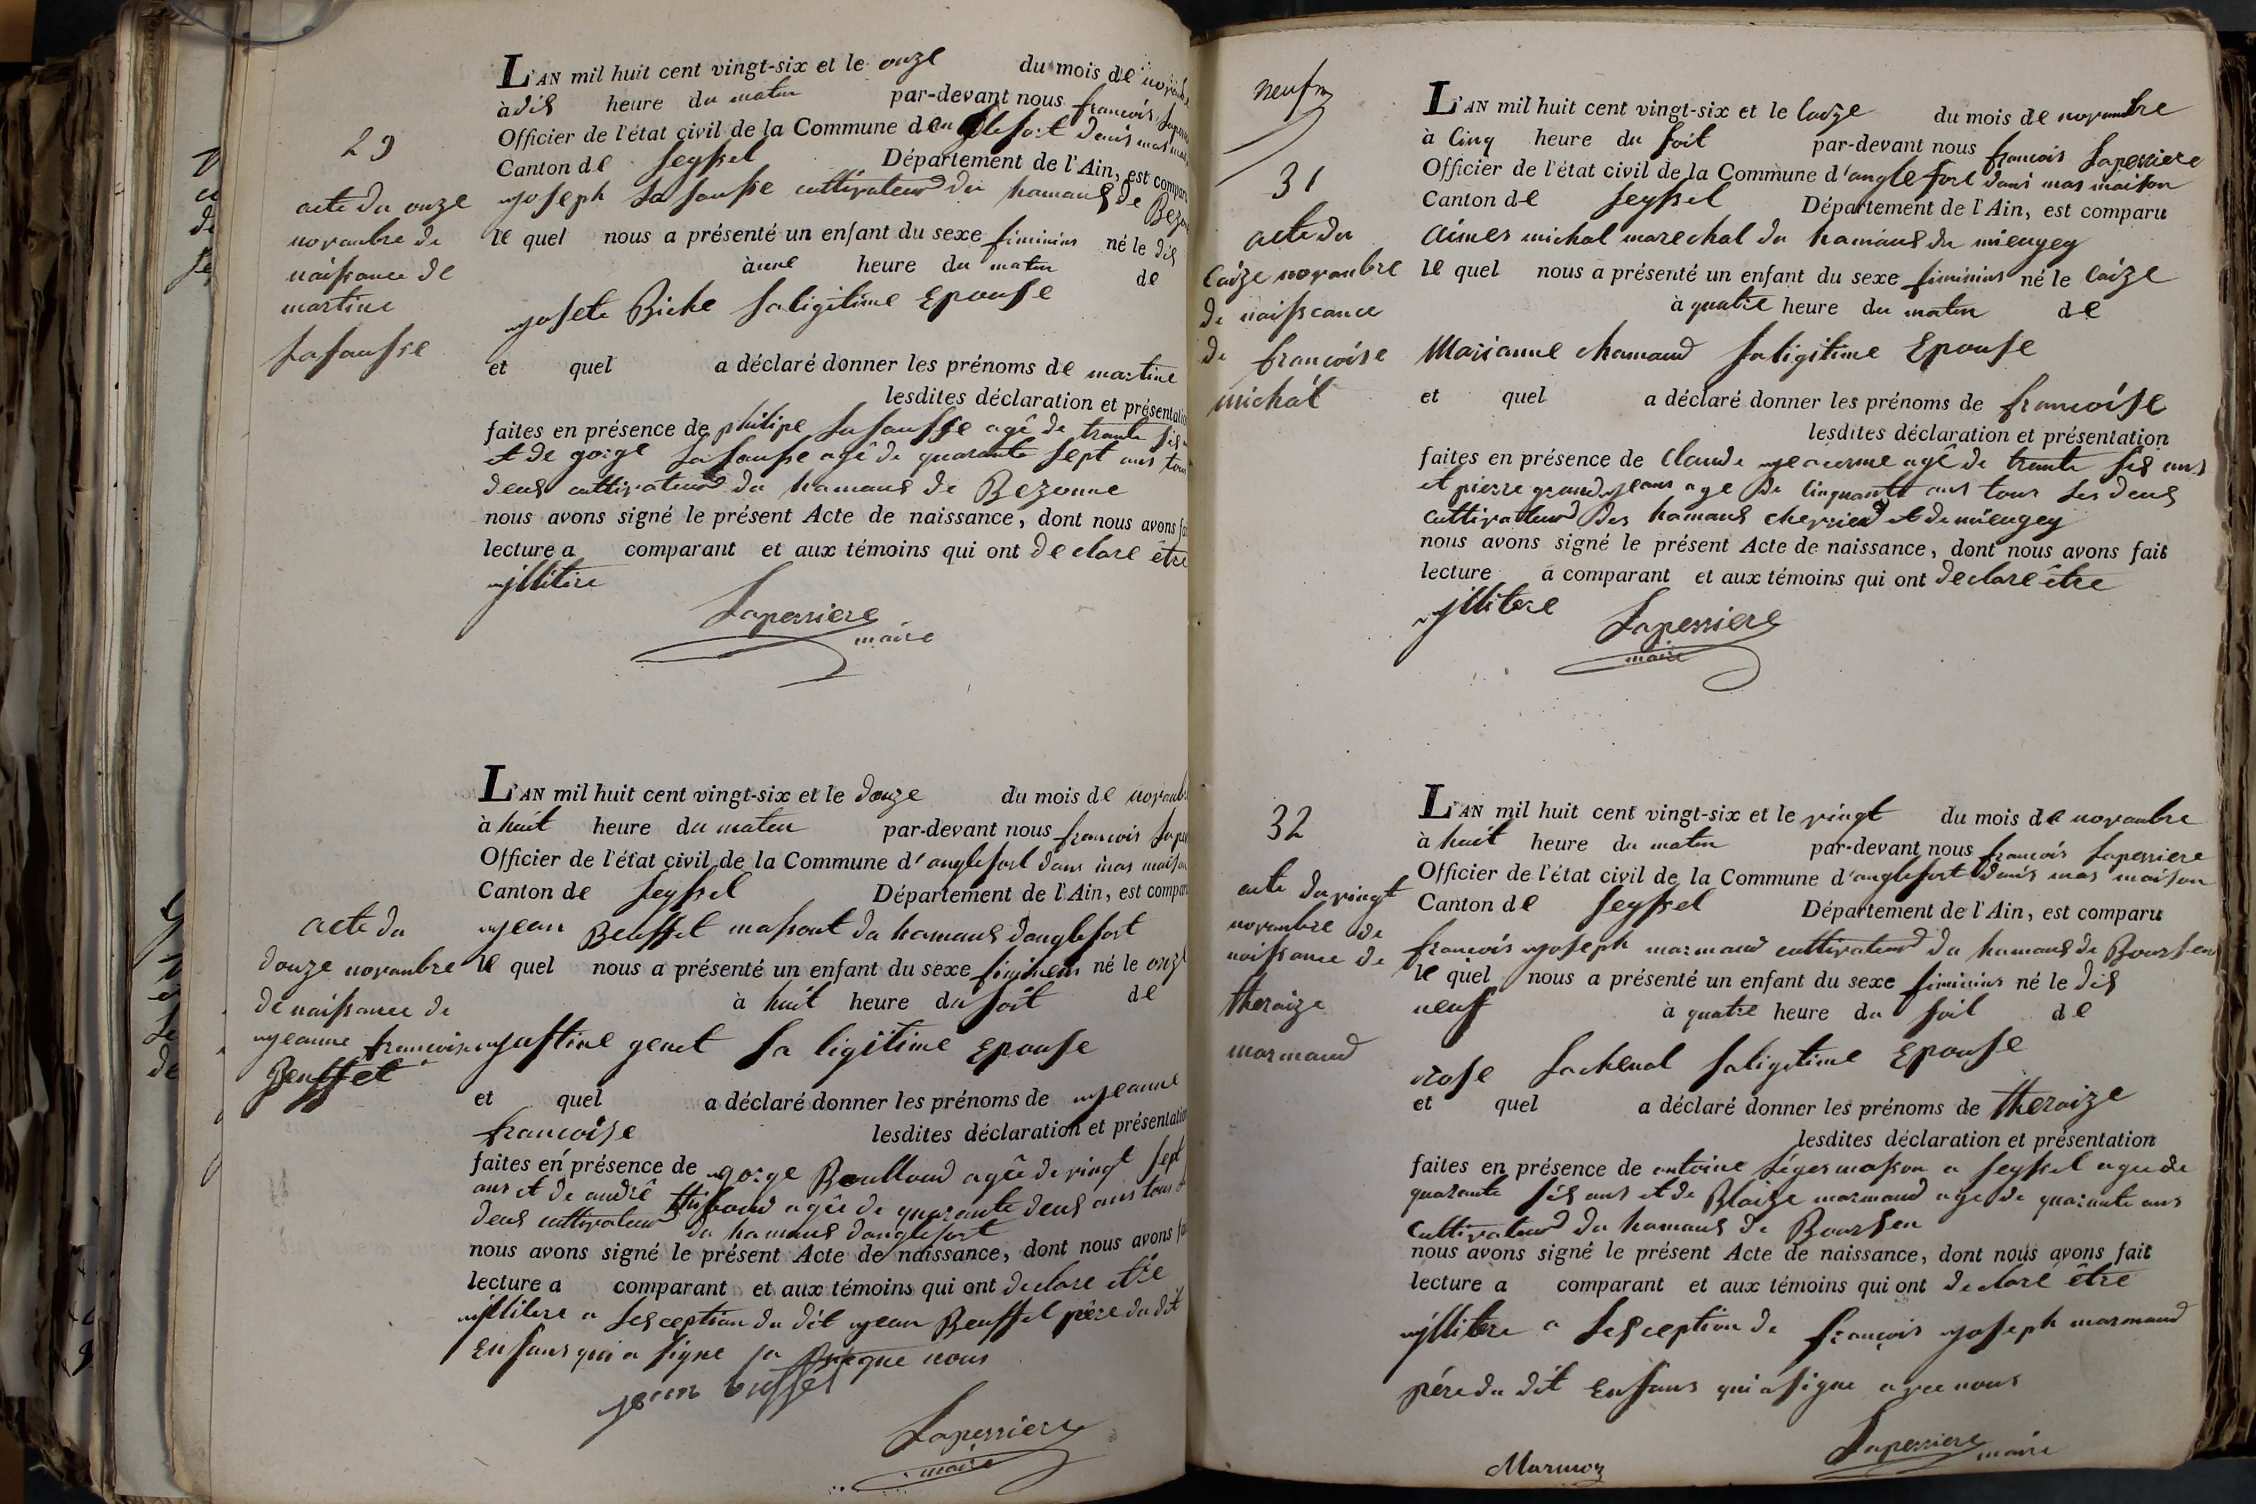 29
acte du onze
novanbre de
naissance de
martine
Lasausse
L'AN mil huit cent vingt-six et le onze du mois de
à dis heure du matin par-devant nous francois
Officier de l'état civil de la Commune d'anglefort dans mas
Canton de seyssel Département de l'Ain, est
joseph La sausse cultivateur du hamaus de
le quel nous a présenté un enfant du sexe fiminins né le dis
à une heure du matin de
josete Biche saligitime Epouse
et quel a déclaré donner les prénoms de martine
lesdites déclaration et
faites en présence de philipe Lasausse agê de trante sis
et de gorge Lasausse agê de quarante sept ans
deus cultivateur du hamaus de Bezonne
nous avons signé le présent Acte de naissance, dont nous avons
lecture a comparant et aux témoins qui ont declare être
jllitere
Laperriere
maire
acte du
douze novanbre
de naissance de
jeanne francoise
Beuffet
L'AN mil huit cent vingt-six et le douze du mois de
à huit heure du matin par-devant nous francois
Officier de l'état civil de la Commune d'anglefort dans mas
Canton de seyssel Département de l'Ain, est
jean Beuffet du hamaus danglefort
le quel nous a présenté un enfant du sexe né le
à huit heure du soit de
justine genet sa ligitime Epouse
et quel a déclaré donner les prénoms de jeanne
francoise lesdites déclaration et
faites en présence de gorge agêe de vingt sept
ans et de andrê agêe de quarante deus ans tous
deus cultivateur du hamaus danglefort
nous avons signé le présent Acte de naissance, dont nous avons
lecture a comparant et aux témoins qui ont declare etre
jllitere a sesception du dit jean Beuffet père du dit
Enfans qui a signe nous
jean buffet
Laperriere
maire
neuf
31
acte du
caize novanbre
de naisscance
de francoise
michat
L'AN mil huit cent vingt-six et le caize du mois de novanbre
à cinq heure du soit par-devant nous francois Laperriere
Officier de l'état civil de la Commune d'anglefort dans mas maison
Canton de seyssel Département de l'Ain, est comparu
aimes michal marechal du hamaus du mieugey
le quel nous a présenté un enfant du sexe fiminins né le caize
à quatre heure du matin de
Marianne chamaud saligitime Epouse
et quel a déclaré donner les prénoms de francoise
lesdites déclaration et présentation
faites en présence de claude agê de trante sis ans
et pierre grandjeans age de cinquante ans tous Les deus
cultivateur des hamaus et de mieugey
nous avons signé le présent Acte de naissance, dont nous avons fait
lecture a comparant et aux témoins qui ont declare être
jllitere
Laperriere
maire
32
acte du vingt
novanbre de
naissance de
theraize
marmand
L'AN mil huit cent vingt-six et le vingt du mois de novanbre
à huit heure du matin par-devant nous francois Laperriere
Officier de l'état civil de la Commune d'anglefort dans mas maison
Canton de seyssel Département de l'Ain, est comparu
francois joseph marmand cultivateur du hamaus de Boursen
le quel nous a présenté un enfant du sexe fiminins né le dis
neuf à quatre heure du soit de
rose Lachenal saligitime Epouse
et quel a déclaré donner les prénoms de theraize
lesdites déclaration et présentation
faites en présence de antoine Léger masson a seyssel agee de
quarante sis ans et de Blaize marmand age de quarante ans
cultivateur du hamaus de Boursen
nous avons signé le présent Acte de naissance, dont nous avons fait
lecture a comparant et aux témoins qui ont declare être
jllitere a sesception de françois joseph marmand
père du dit Enfans qui a signe avec nous
Laperriere maire